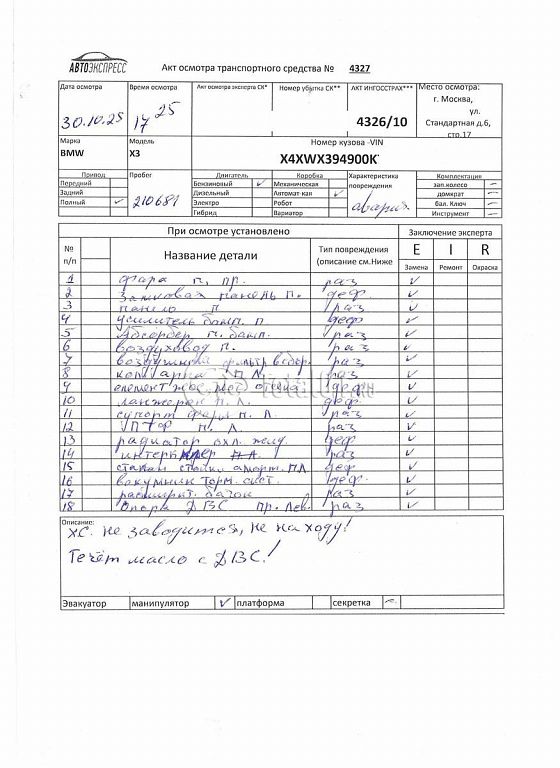 АВТОЭКСПРЕСС
Акт осмотра транспортного средства № 4327
Дата осмотра Время осмотра Акт осмотра эксперта СК* Номер убытка СК** АКТ ИНГОССТРАХ*** Место осмотра:
30.10.25 17 25 4326/10 г. Москва, ул. Стандартная д.6, стр.17
Марка Модель Номер кузова -VIN
BMW X3 X4XWX394900K
Привод Пробег Двигатель Коробка Характеристика повреждения Комплектация
Передний Бензиновый ✓ Механическая зап.колесо –
Задний 210681 Дизельный Автомат-кая ✓ авария домкрат –
Полный ✓ Электро Робот бал. Ключ –
Гибрид Вариатор Инструмент –
При осмотре установлено Заключение эксперта
№ п/п Название детали Тип повреждения (описание см.Ниже E I R
Замена Ремонт Окраска
1 фара п. пр. раз ✓
2 Замковая панель п. деф. ✓
3 панель п раз ✓
4 усилитель бамп. п деф ✓
5 Абсорбер п. бамп. раз ✓
6 воздуховод п. раз ✓
7 воздушный фильтр в сбор. раз ✓
8 п.л. раз ✓
9 элемент отсека деф. ✓
10 ланжерон п.л. деф. ✓
11 супорт фары п. л. раз ✓
12 ПТФ п. л. раз ✓
13 радиатор охл. жид. деф ✓
14 раз ✓
15 стакан стойки аморт. п.л деф ✓
16 вакумник торм. сист. деф. ✓
17 расширит. бачок раз ✓
18 опора ДВС пр. лев. раз ✓
Описание:
ХС. не заводится, не на ходу!
Течёт масло с ДВС!
Эвакуатор манипулятор ✓ платформа секретка –